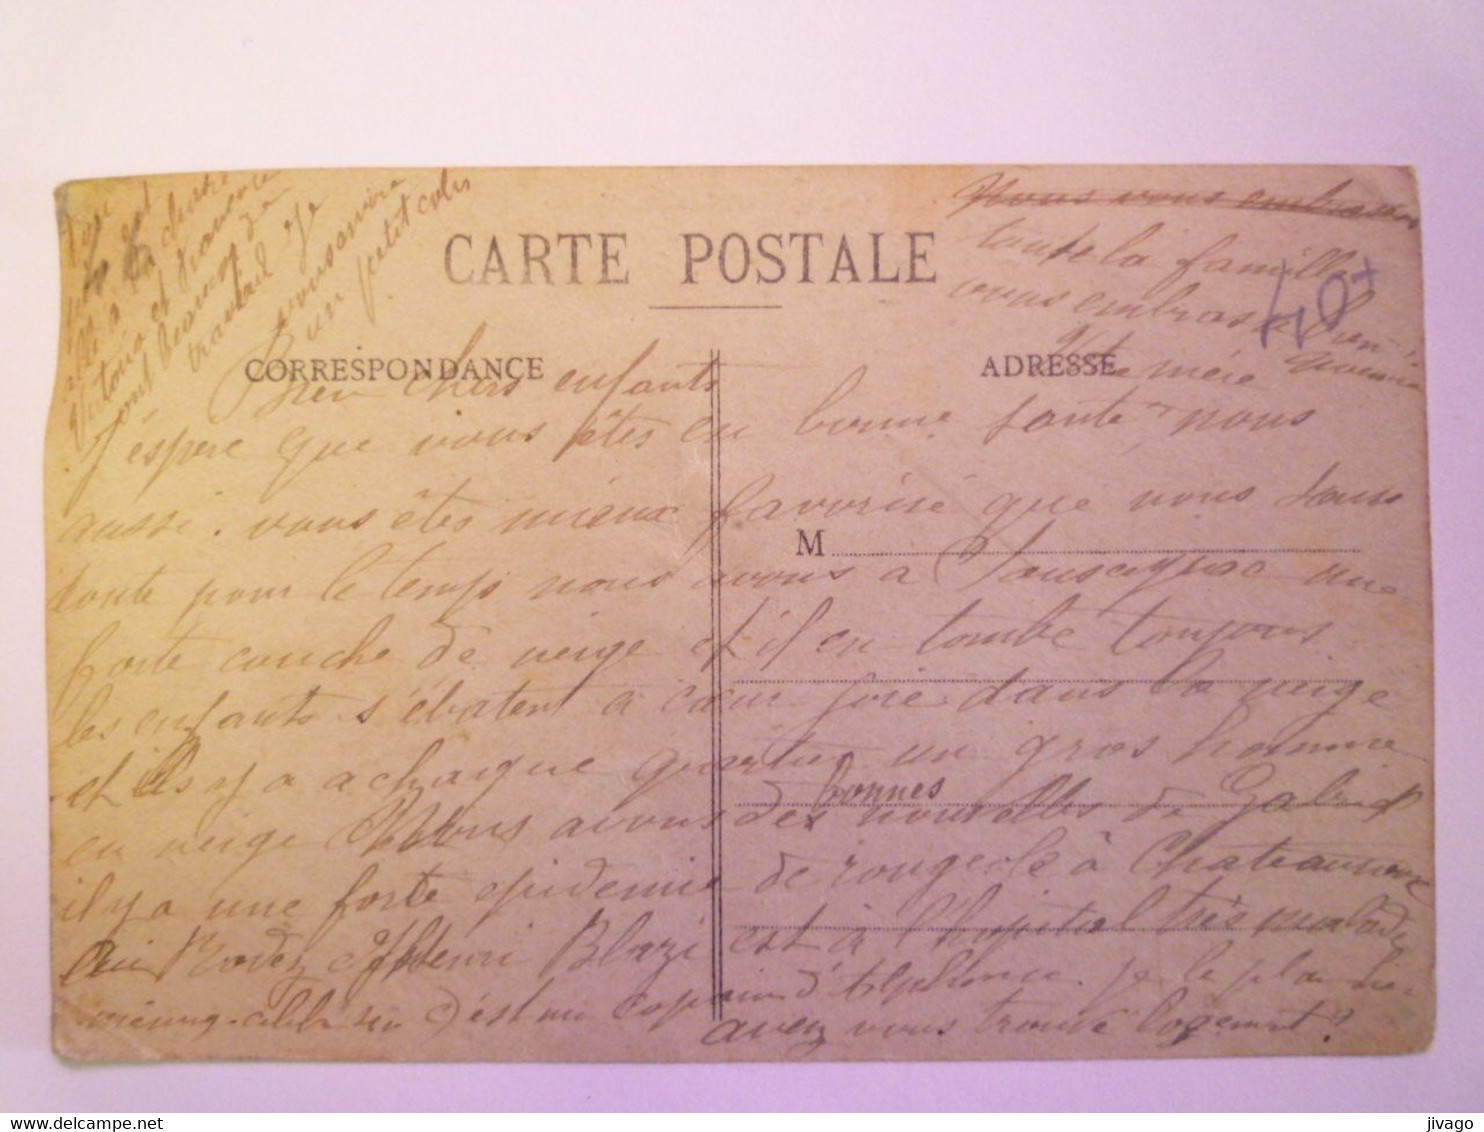 CARTE POSTALE
CORRESPONDANCE
ADRESSE
M
40+
Bien chers enfants
J'éspere que vous êtes en bonne santé nous
aussi. vous êtes mieux favorisé que nous sans
doute pour le temps nous avons a Sousceyrac une
forte couche de neige et il en tombe toujours
les enfants s'ébatent a cœur joie dans la neige
et ils y a a chaque quartier un gros homme
en neige Nous avons des bonnes nouvelles de Gabriel
il y a une forte epidemie de rougeole à Chateauneuf
Rodez Henri Blazi est à l'hopital très malade
c'est un copain d'Alphonse. je le
avez vous trouvé logement?
Nous vous embrassons
toute la famille
vous embrasse
Votre mère
Victoria et
font beaucoup de
travail Je
vous envoie
un petit colis
bonnes
jivago